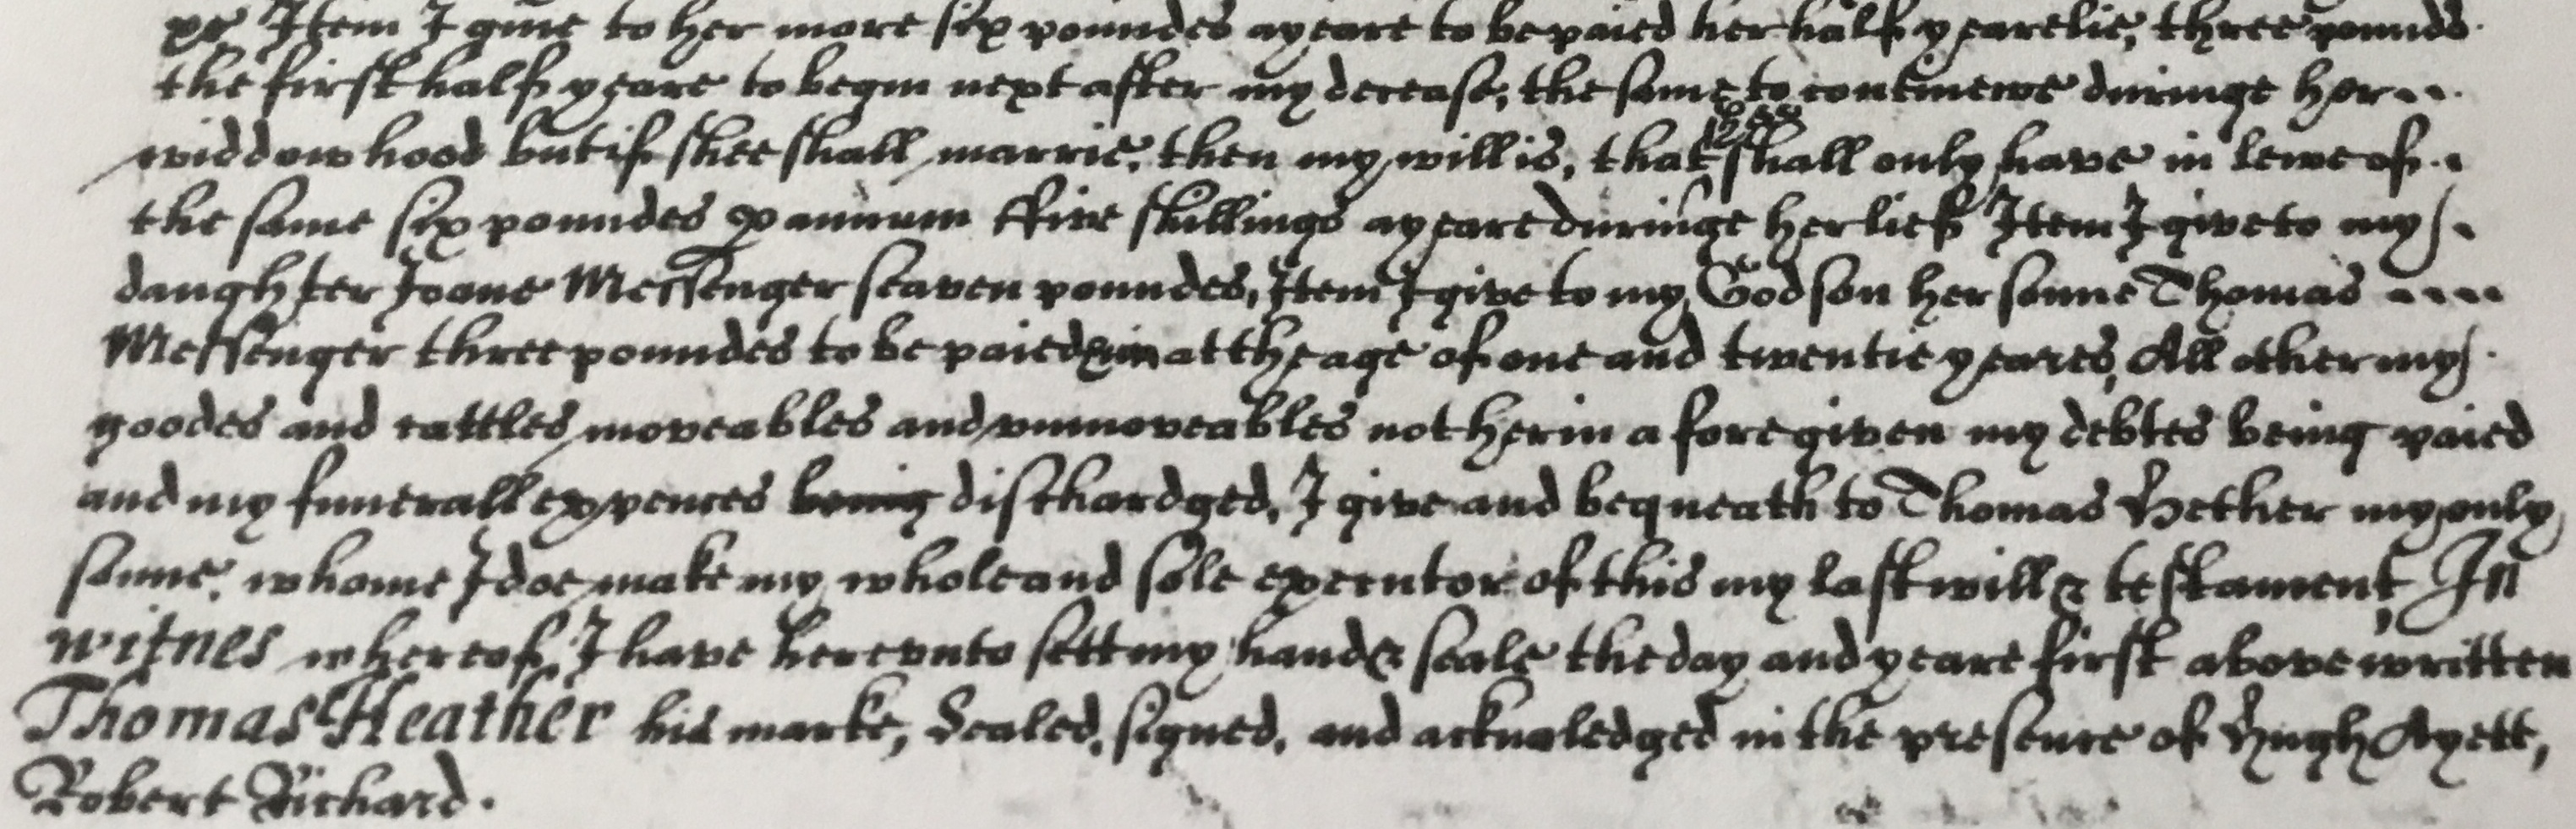 xs Item I give to her more six poundes a yeare to be paied her half yearelie, three pounds
the first half yeare to begin next after my decease, the same to continewe duringe her
widdowhood but if shee shall marrie, then my will is, that shee shall only have in lewe of
the same six poundes p annum ffive shillings a yeare duringe her lief Item I give to my
daughter Joane Messenger seaven poundes, Item I give to my Godson her sonne Thomas
Messenger three poundes to be paied him at the age of one and twentie yeares, All other my
goodes and cattles moveables and unmoveables not herin afore given my debtes being paied
and my funerall expences being dischardged, I give and bequeath to Thomas Hether my only
sonne, whome I doe make my whole and sole executor of this my last will & testament, In
witnes whereof, I have herevnto sett my hand & seale the day and yeare first above written
Thomas Heather his marke, Sealed, signed, and acknaledged in the presence of Hugh Ayett,
Robert Richard.